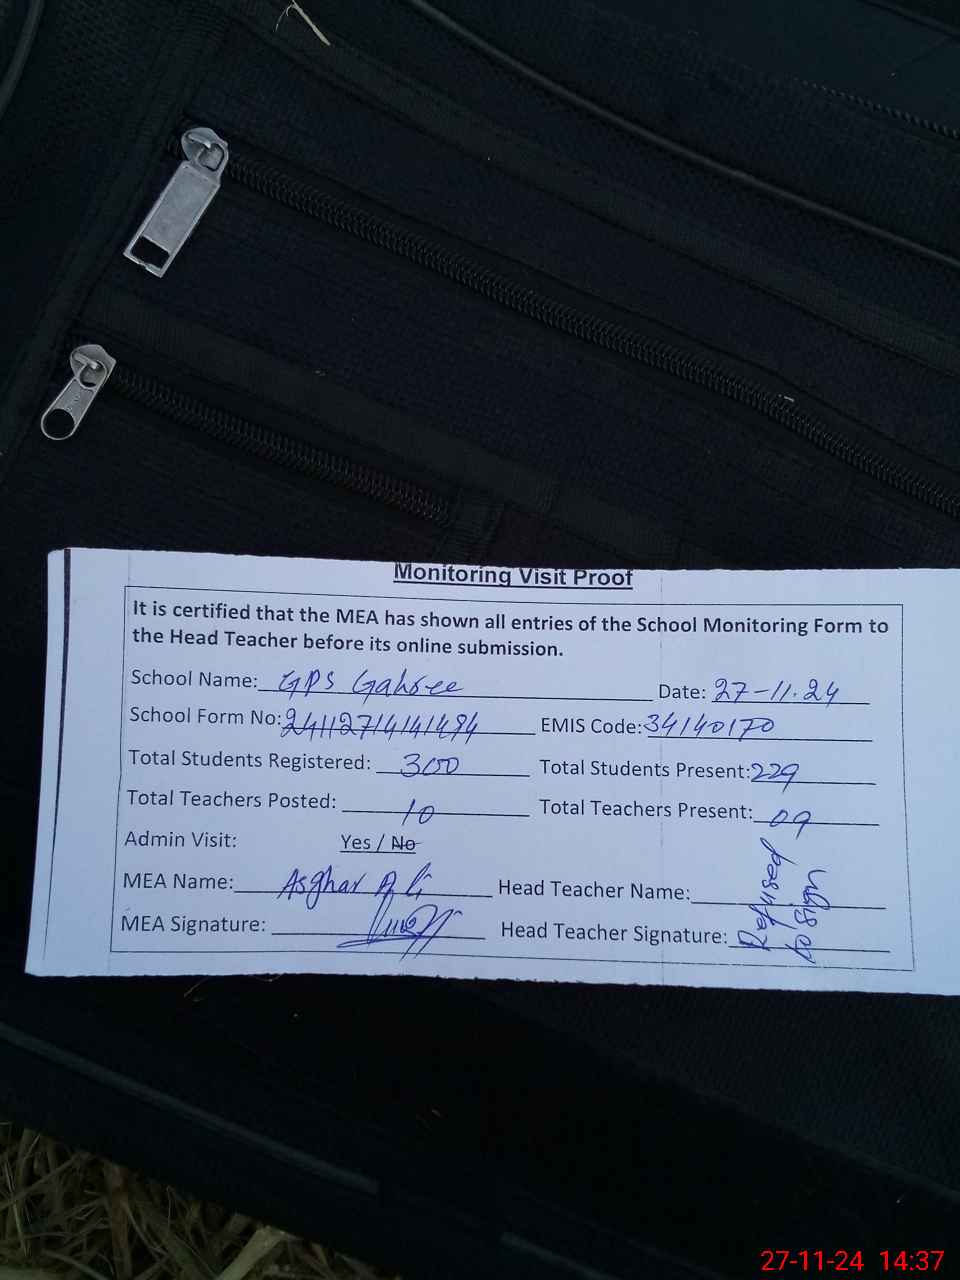 Monitoring Visit Proof
It is certified that the MEA has shown all entries of the School Monitoring Form to
the Head Teacher before its online submission.
School Name: GPS Gahree Date: 27-11-24
School Form No: 24112714141494 EMIS Code: 34140170
Total Students Registered: 300 Total Students Present: 229
Total Teachers Posted: 10 Total Teachers Present: 09
Admin Visit: Yes / No
MEA Name: Asghar Ali Head Teacher Name:
MEA Signature: Head Teacher Signature:
Refused
to sign
27-11-24 14:37